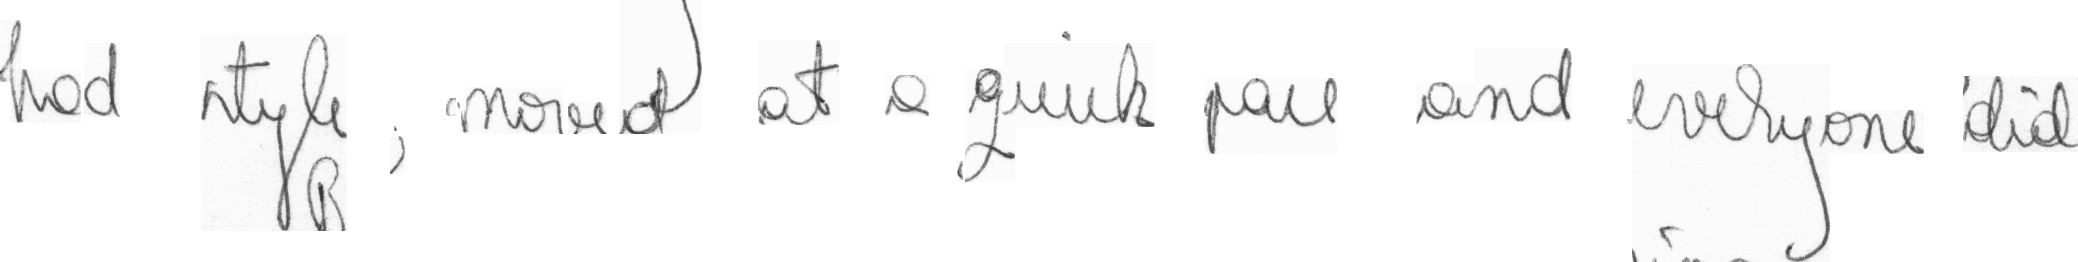 had style, moved at a quick pace and everyone did